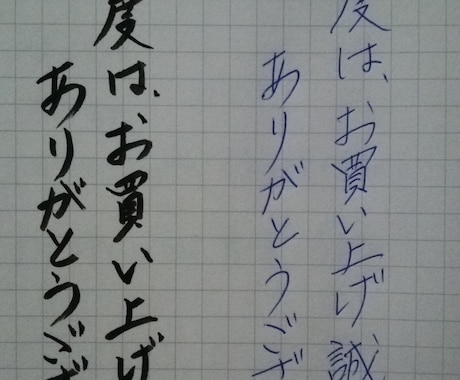 度は、お買い上げ誠
ありがとうござ
度は、お買い上げ
ありがとうござ